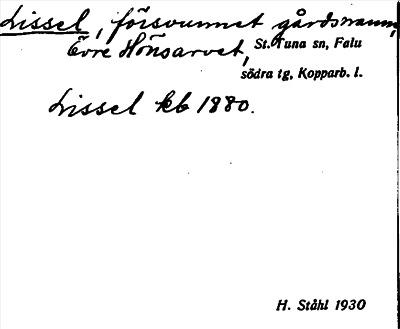 Lissel, försvunnet gårdsnamn,
Övre Hönsarvet, St. Tuna sn, Falu
södra tg, Kopparb. l.
Lissel kb 1880.
H. Ståhl 1930